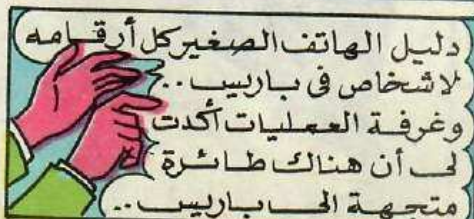 دليل الهاتف الصغير كل أرقامه
لاشخاص فى باريس..
وغرفة العمليات أكدت
لى أن هناك طائرة
متجهة الى باريس..